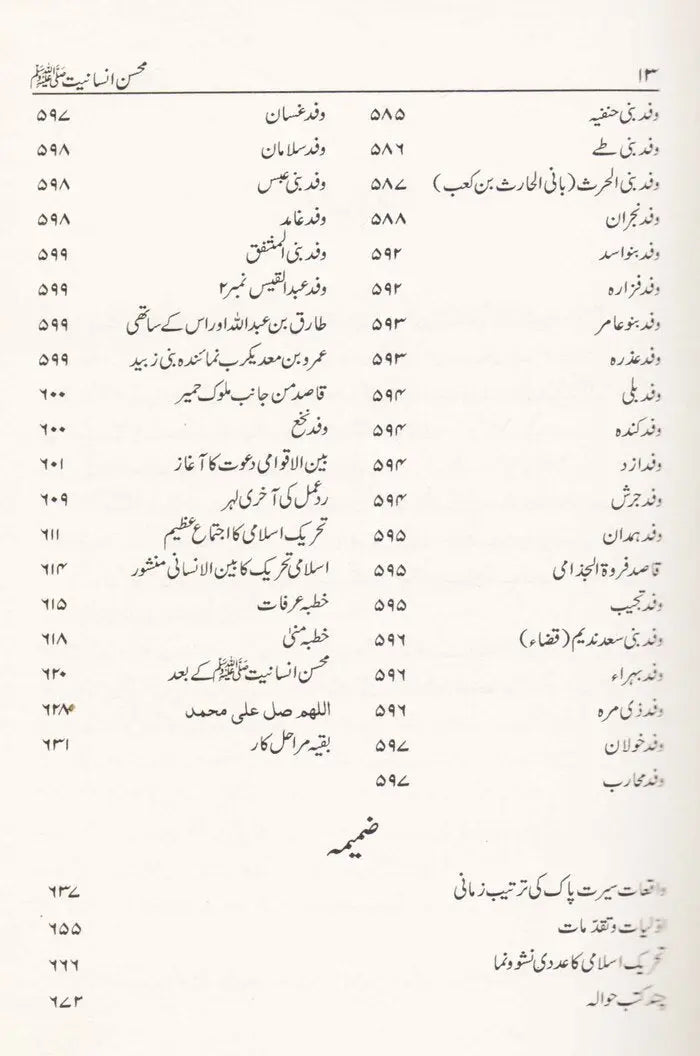 ۱۳ محسن انسانیت ﷺ
وفد بنی حنفیہ ۵۸۵
وفد بنی طے ۵۸۶
وفد بنی الحرث (بانی الحارث بن کعب) ۵۸۷
وفد نجران ۵۸۸
وفد بنو اسد ۵۹۲
وفد فزارہ ۵۹۲
وفد بنو عامر ۵۹۳
وفد عذرہ ۵۹۳
وفد بلی ۵۹۴
وفد کندہ ۵۹۴
وفد ازد ۵۹۴
وفد جرش ۵۹۴
وفد ہمدان ۵۹۵
قاصد فروۃ الجذامی ۵۹۵
وفد تجیب ۵۹۵
وفد بنی سعد ندیم (قضاء) ۵۹۶
وفد بہراء ۵۹۶
وفد ذی مرہ ۵۹۶
وفد خولان ۵۹۷
وفد محارب ۵۹۷
وفد غسان ۵۹۷
وفد سلامان ۵۹۸
وفد بنی عبس ۵۹۸
وفد غامد ۵۹۸
وفد بنی المنتفق ۵۹۹
وفد عبدالقیس نمبر ۲ ۵۹۹
طارق بن عبداللہ اور اس کے ساتھی ۵۹۹
عمرو بن معدیکرب نمائندہ بنی زبید ۵۹۹
قاصد من جانب ملوک حمیر ۶۰۰
وفد نخع ۶۰۰
بین الاقوامی دعوت کا آغاز ۶۰۱
رد عمل کی آخری لہر ۶۰۹
تحریک اسلامی کا اجتماع عظیم ۶۱۱
اسلامی تحریک کا بین الانسانی منشور ۶۱۴
خطبہ عرفات ۶۱۵
خطبہ منیٰ ۶۱۸
محسن انسانیت ﷺ کے بعد ۶۲۰
اللھم صل علی محمد ۶۲۸
بقیہ مراحل کار ۶۳۱
ضمیمہ
واقعات سیرت پاک کی ترتیب زمانی ۶۳۷
اوّلیات و تقدّمات ۶۵۵
تحریک اسلامی کا عددی نشوونما ۶۶۶
چند کتب حوالہ ۶۷۲